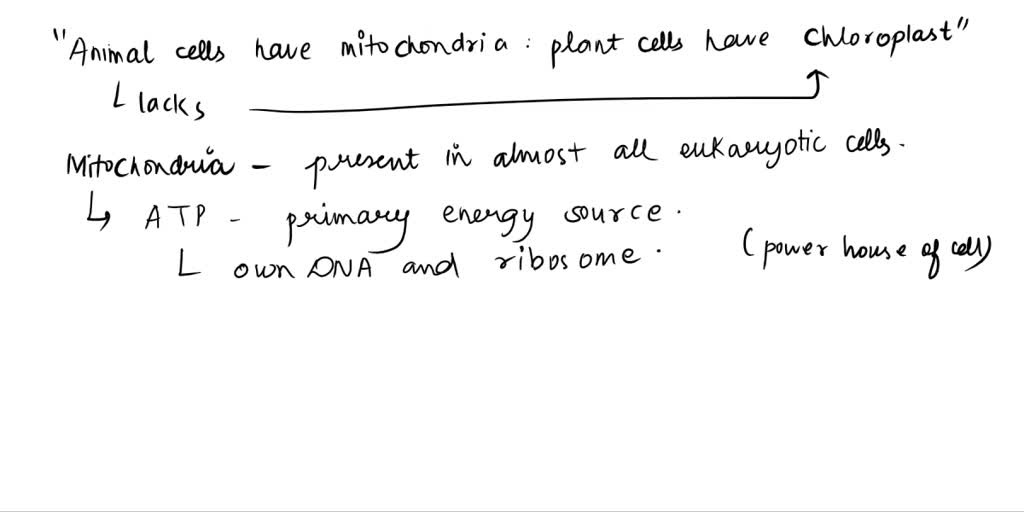 "Animal cells have mitochondria : plant cells have Chloroplast"
lacks
Mitochondria - present in almost all eukaryotic cells.
ATP - primary energy source.
own DNA and ribosome. (power house of cell)